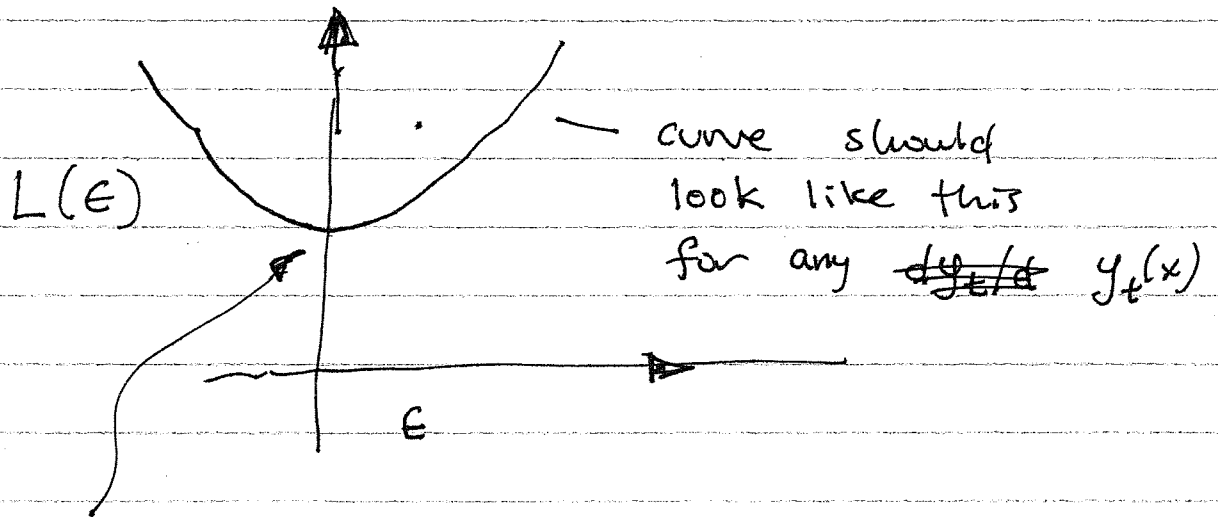 curve should
L(ϵ)
look like this
for any ~~dy_t/d~~ y_t(x)
ϵ